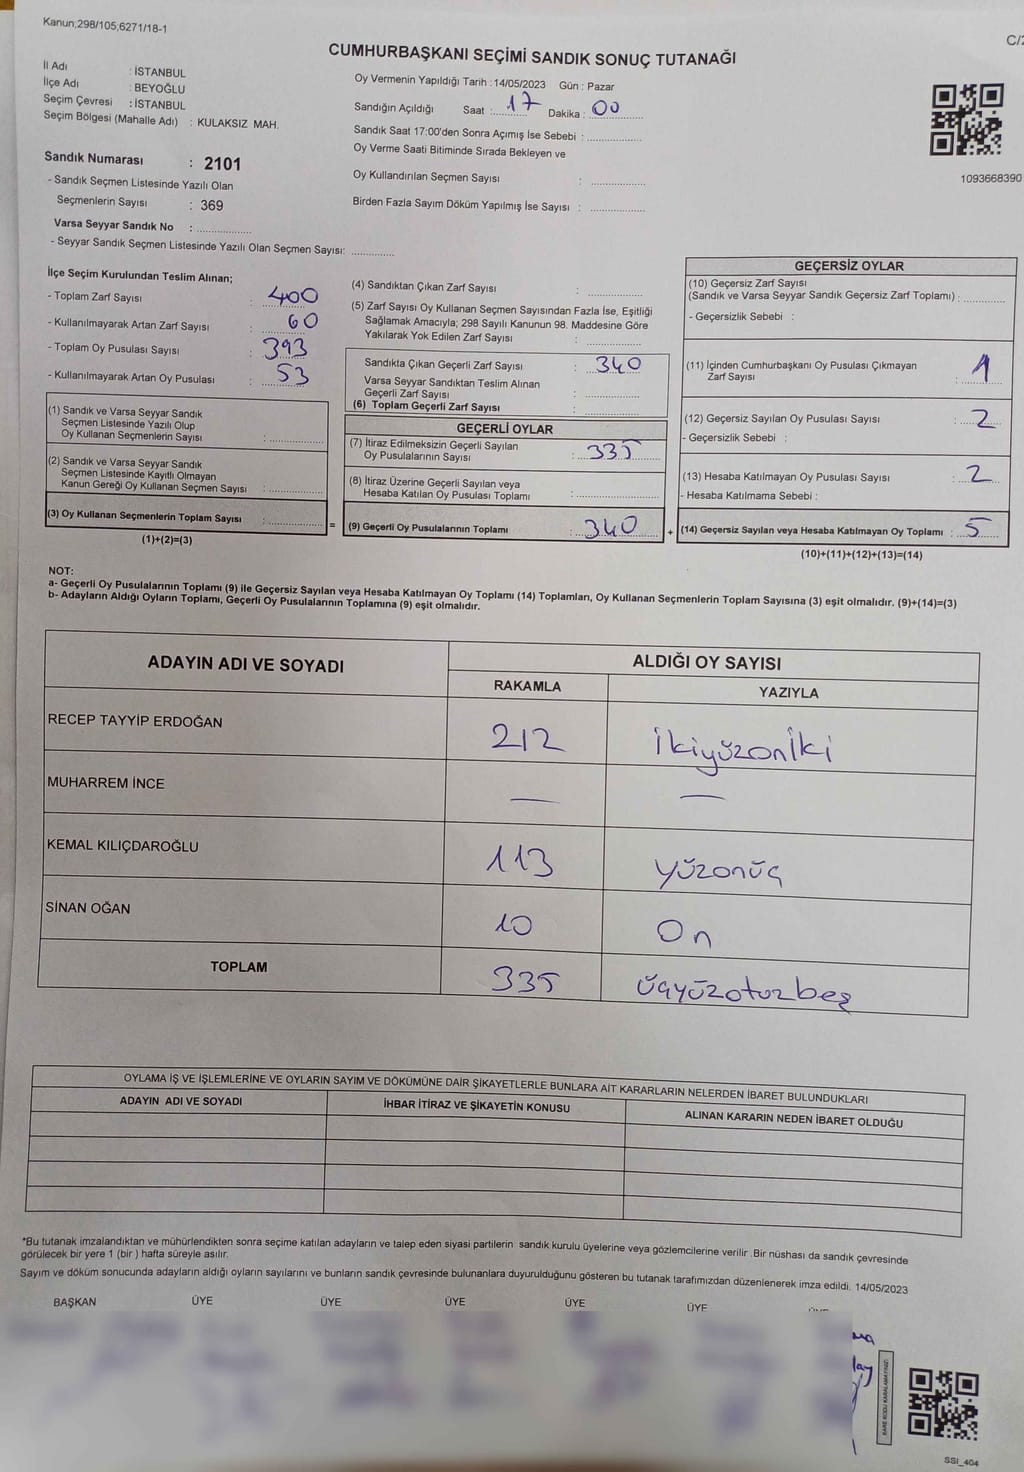 Kanun;298/105;6271/18-1
CUMHURBAŞKANI SEÇİMİ SANDIK SONUÇ TUTANAĞI
İl Adı : İSTANBUL
İlçe Adı : BEYOĞLU
Seçim Çevresi : İSTANBUL
Seçim Bölgesi (Mahalle Adı) : KULAKSIZ MAH.
Sandık Numarası : 2101
- Sandık Seçmen Listesinde Yazılı Olan
Seçmenlerin Sayısı : 369
Varsa Seyyar Sandık No : ................
- Seyyar Sandık Seçmen Listesinde Yazılı Olan Seçmen Sayısı: ............
Oy Vermenin Yapıldığı Tarih : 14/05/2023 Gün : Pazar
Sandığın Açıldığı Saat : 17 Dakika : 00
Sandık Saat 17:00'den Sonra Açımış İse Sebebi : ................
Oy Verme Saati Bitiminde Sırada Bekleyen ve
Oy Kullandırılan Seçmen Sayısı : ................
Birden Fazla Sayım Döküm Yapılmış İse Sayısı : ................
1093668390
İlçe Seçim Kurulundan Teslim Alınan;
- Toplam Zarf Sayısı : 400
- Kullanılmayarak Artan Zarf Sayısı : 60
- Toplam Oy Pusulası Sayısı : 393
- Kullanılmayarak Artan Oy Pusulası : 53
(1) Sandık ve Varsa Seyyar Sandık
Seçmen Listesinde Yazılı Olup
Oy Kullanan Seçmenlerin Sayısı : ................
(2) Sandık ve Varsa Seyyar Sandık
Seçmen Listesinde Kayıtlı Olmayan
Kanun Gereği Oy Kullanan Seçmen Sayısı : ................
(3) Oy Kullanan Seçmenlerin Toplam Sayısı : ................ =
(1)+(2)=(3)
(4) Sandıktan Çıkan Zarf Sayısı : ................
(5) Zarf Sayısı Oy Kullanan Seçmen Sayısından Fazla İse, Eşitliği
Sağlamak Amacıyla; 298 Sayılı Kanunun 98. Maddesine Göre
Yakılarak Yok Edilen Zarf Sayısı : ................
Sandıkta Çıkan Geçerli Zarf Sayısı : 340
Varsa Seyyar Sandıktan Teslim Alınan
Geçerli Zarf Sayısı : ................
(6) Toplam Geçerli Zarf Sayısı : ................
GEÇERLİ OYLAR
(7) İtiraz Edilmeksizin Geçerli Sayılan
Oy Pusulalarının Sayısı : 335
(8) İtiraz Üzerine Geçerli Sayılan veya
Hesaba Katılan Oy Pusulası Toplamı : ................
(9) Geçerli Oy Pusulalarının Toplamı : 340 +
GEÇERSİZ OYLAR
(10) Geçersiz Zarf Sayısı
(Sandık ve Varsa Seyyar Sandık Geçersiz Zarf Toplamı) : ............
- Geçersizlik Sebebi :
(11) İçinden Cumhurbaşkanı Oy Pusulası Çıkmayan
Zarf Sayısı : 1
(12) Geçersiz Sayılan Oy Pusulası Sayısı : 2
- Geçersizlik Sebebi :
(13) Hesaba Katılmayan Oy Pusulası Sayısı : 2
- Hesaba Katılmama Sebebi :
(14) Geçersiz Sayılan veya Hesaba Katılmayan Oy Toplamı : 5
(10)+(11)+(12)+(13)=(14)
NOT:
a- Geçerli Oy Pusulalarının Toplamı (9) ile Geçersiz Sayılan veya Hesaba Katılmayan Oy Toplamı (14) Toplamları, Oy Kullanan Seçmenlerin Toplam Sayısına (3) eşit olmalıdır. (9)+(14)=(3)
b- Adayların Aldığı Oyların Toplamı, Geçerli Oy Pusulalarının Toplamına (9) eşit olmalıdır.
ADAYIN ADI VE SOYADI ALDIĞI OY SAYISI
RAKAMLA YAZIYLA
RECEP TAYYİP ERDOĞAN 212 İkiyüzoniki
MUHARREM İNCE — —
KEMAL KILIÇDAROĞLU 113 yüzonüç
SİNAN OĞAN 10 On
TOPLAM 335 üçyüzotuzbeş
OYLAMA İŞ VE İŞLEMLERİNE VE OYLARIN SAYIM VE DÖKÜMÜNE DAİR ŞİKAYETLERLE BUNLARA AİT KARARLARIN NELERDEN İBARET BULUNDUKLARI
ADAYIN ADI VE SOYADI İHBAR İTİRAZ VE ŞİKAYETİN KONUSU ALINAN KARARIN NEDEN İBARET OLDUĞU
*Bu tutanak imzalandıktan ve mühürlendikten sonra seçime katılan adayların ve talep eden siyasi partilerin sandık kurulu üyelerine veya gözlemcilerine verilir .Bir nüshası da sandık çevresinde
görülecek bir yere 1 (bir ) hafta süreyle asılır.
Sayım ve döküm sonucunda adayların aldığı oyların sayılarını ve bunların sandık çevresinde bulunanlara duyurulduğunu gösteren bu tutanak tarafımızdan düzenlenerek imza edildi. 14/05/2023
BAŞKAN ÜYE ÜYE ÜYE ÜYE ÜYE
KARE KODU KARALAMAYINIZ!
SSI_404